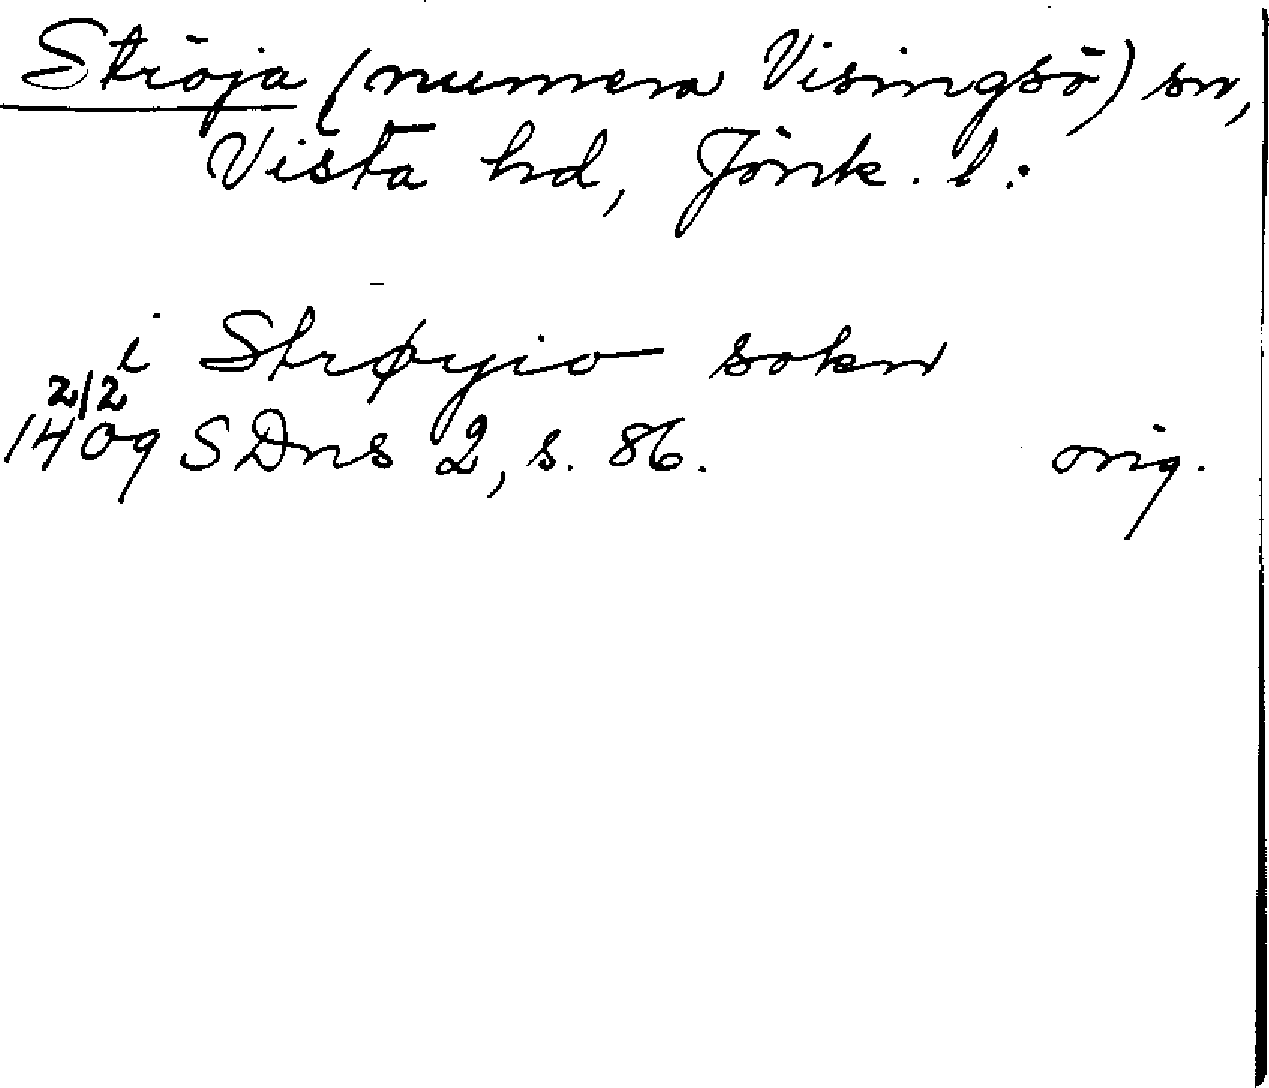 Ströja (numera Visingsö) sn,
Vista hd, Jönk. l.
i Strøyio sokn
2/2
1409 SDns 2, s. 86. orig.